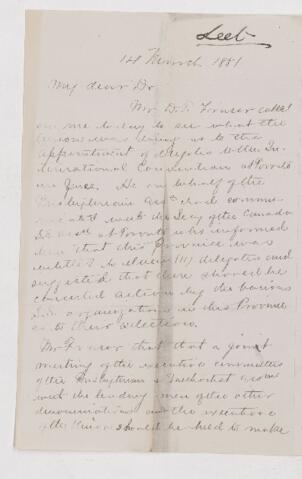 14 March 1881
My dear Dr
Mr. D. F. Fraser called
on me today to see what the
was doing as to the
appointment of to the In-
ternational Convention at Toronto
in June. He on behalf of the
Presbyterian had commu-
nicated with the Secy of the Canada
S.S. at Toronto who informed
him that this Province was
entitled to eleven (11) delegates and
suggested that there should be
concerted action by the various
S.S. organizations in this Province
as to their selection.
Mr Fraser that that a joint
meeting of the executive committees
of the Presbyterian & Methodist
with the leading men of the other
denominations and the executive
of the Union should be held to make